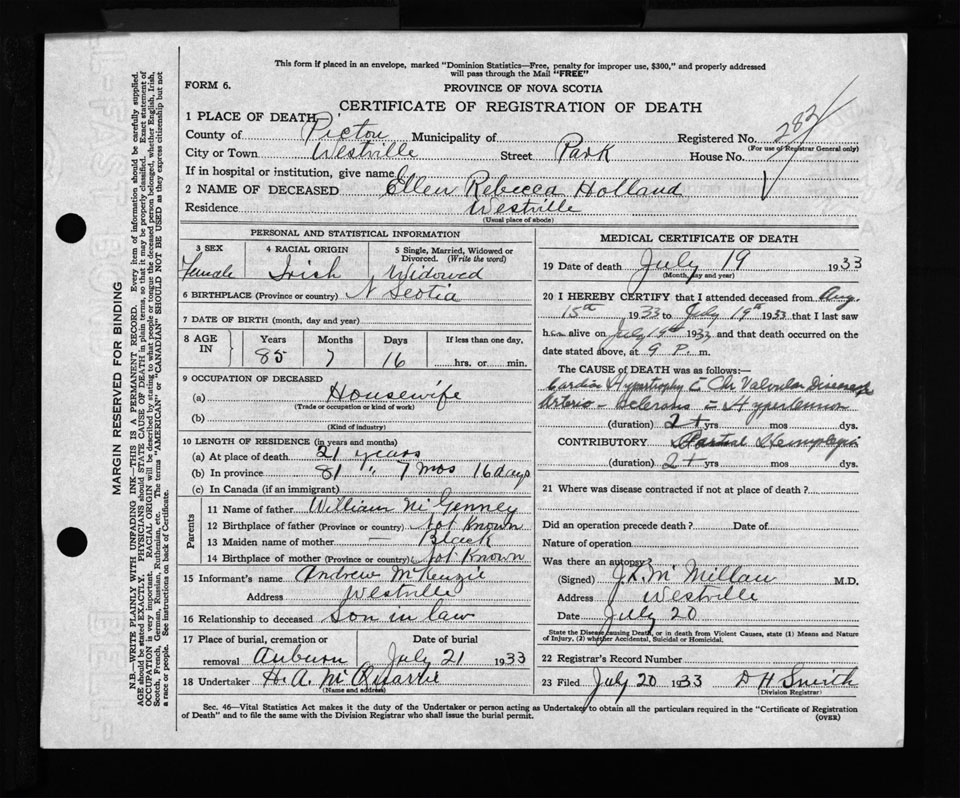 This form if placed in an envelope, marked "Dominion Statistics—Free, penalty for improper use, $300," and properly addressed
will pass through the Mail "FREE"
FORM 6.
PROVINCE OF NOVA SCOTIA
CERTIFICATE OF REGISTRATION OF DEATH
1 PLACE OF DEATH
County of Pictou Municipality of Registered No.
(For use of Registrar General only)
City or Town Westville Street Park House No.
If in hospital or institution, give name
2 NAME OF DECEASED Ellen Rebecca Holland
Residence Westville
(Usual place of abode)
PERSONAL AND STATISTICAL INFORMATION
3 SEX 4 RACIAL ORIGIN 5 Single, Married, Widowed or
Divorced. (Write the word)
Female Irish Widowed
6 BIRTHPLACE (Province or country) N Scotia
7 DATE OF BIRTH (month, day and year)
8 AGE IN Years Months Days If less than one day,
85 7 16 hrs. or min.
9 OCCUPATION OF DECEASED
(a) Housewife
(Trade or occupation or kind of work)
(b)
(Kind of industry)
10 LENGTH OF RESIDENCE (in years and months)
(a) At place of death 21 years
(b) In province 81 " 7 mos 16 days
(c) In Canada (if an immigrant)
Parents
11 Name of father William Mc Genney
12 Birthplace of father (Province or country) Not Known
13 Maiden name of mother — Black
14 Birthplace of mother (Province or country) Not Known
15 Informant's name Andrew McKenzie
Address Westville
16 Relationship to deceased Son in law
17 Place of burial, cremation or Date of burial
removal Auburn July 21 1933
18 Undertaker H. A. McQuarrie
(Name and address)
MEDICAL CERTIFICATE OF DEATH
19 Date of death July 19 1933
(Month, day and year)
20 I HEREBY CERTIFY that I attended deceased from Aug.
15th 1933 to July 19th 1933 that I last saw
h alive on July 19th 1933, and that death occurred on the
date stated above, at 9 P. m.
The CAUSE OF DEATH was as follows:—
Cardiac Hypertrophy Chr Valvular Disease
Arterio-Sclerosis = Hypertension
(duration) 2+ yrs mos dys.
CONTRIBUTORY Partial Hemiplegia
(duration) 2+ yrs mos dys.
21 Where was disease contracted if not at place of death?
Did an operation precede death? Date of
Nature of operation
Was there an autopsy?
(Signed) J.K. McMillan M.D.
Address Westville
Date July 20
State the Disease causing Death, or in death from Violent Causes, state (1) Means and Nature
of Injury, (2) whether Accidental, Suicidal or Homicidal.
22 Registrar's Record Number
23 Filed July 20 1933 D H Smith
(Division Registrar)
Sec. 46—Vital Statistics Act makes it the duty of the Undertaker or person acting as Undertaker to obtain all the particulars required in the "Certificate of Registration
of Death" and to file the same with the Division Registrar who shall issue the burial permit. (OVER)
MARGIN RESERVED FOR BINDING
N.B.—WRITE PLAINLY WITH UNFADING INK—THIS IS A PERMANENT RECORD. Every item of information should be carefully supplied.
AGE should be stated EXACTLY. PHYSICIANS should state CAUSE OF DEATH in plain terms, so that it may be properly classified. Exact statement of
OCCUPATION is very important. RACIAL ORIGIN will be described by stating to what people or tongue the deceased person belonged, whether English, Irish,
Scotch, French, German, Russian, Ruthenian, etc. The terms "AMERICAN" or "CANADIAN" SHOULD NOT BE USED as they express citizenship but not
a race or people. See instructions on back of Certificate.